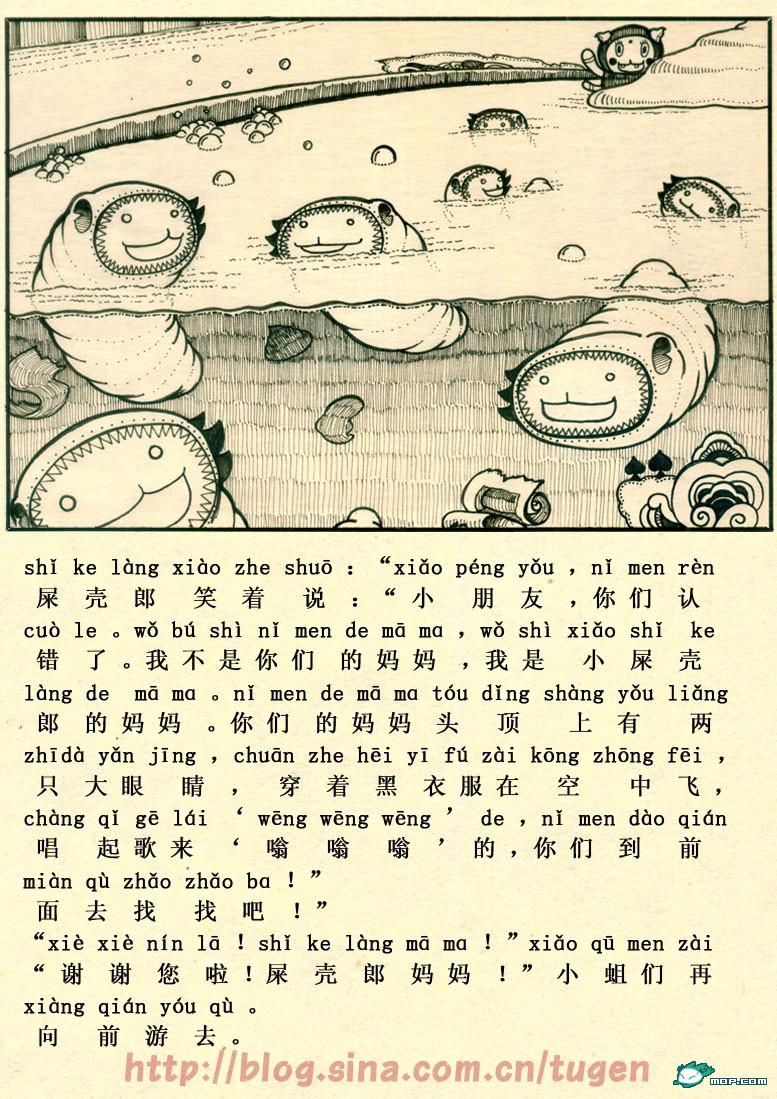 shǐ ke làng xiào zhe shuō : “xiǎo péng yǒu , nǐ men rèn
屎壳郎笑着说:“小朋友,你们认
cuò le 。wǒ bú shì nǐ men de mā ma , wǒ shì xiǎo shǐ ke
错了。我不是你们的妈妈,我是小屎壳
làng de mā ma 。nǐ men de mā ma tóu dǐng shàng yǒu liǎng
郎的妈妈。你们的妈妈头顶上有两
zhīdà yǎn jīng , chuān zhe hēi yī fú zài kōng zhōng fēi ,
只大眼睛,穿着黑衣服在空中飞,
chàng qǐ gē lái ‘ wēng wēng wēng ’ de , nǐ men dào qián
唱起歌来‘嗡嗡嗡’的,你们到前
miàn qù zhǎo zhǎo ba ! ”
面去找找吧!”
“xiè xiè nín lā ! shǐ ke làng mā ma ! ”xiǎo qū men zài
“谢谢您啦!屎壳郎妈妈!”小蛆们再
xiàng qián yóu qù 。
向前游去。
http://blog.sina.com.cn/tugen
MOP.COM